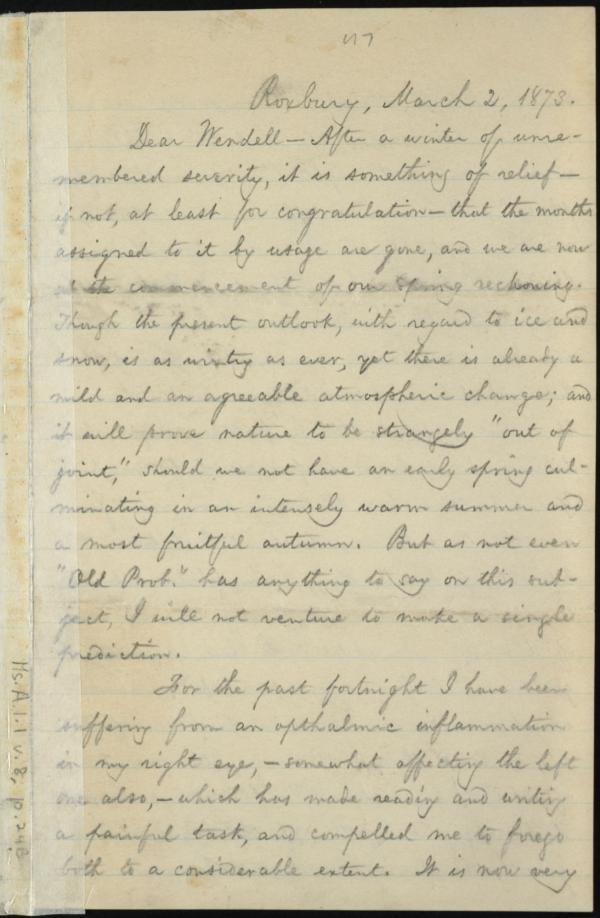 Roxbury, March 2, 1873.
Dear Wendell — After a winter of unre-
membered severity, it is something of relief —
if not, at least for congratulation — that the months
assigned to it by usage are gone, and we are now
at the commencement of our Spring reckoning.
Though the present outlook, with regard to ice and
snow, is as wintry as ever, yet there is already a
mild and an agreeable atmospheric change; and
it will prove nature to be strangely "out of
joint," should we not have an early spring cul-
minating in an intensely warm summer and
a most fruitful autumn. But as not even
"Old Prob." has anything to say on this sub-
ject, I will not venture to make a single
prediction.
For the past fortnight I have been
suffering from an opthalmic inflammation
in my right eye, — somewhat affecting the left
one also, — which has made reading and writing
a painful task, and compelled me to forego
both to a considerable extent. It is now very
Ms.A.1.1 v.8, p.24B